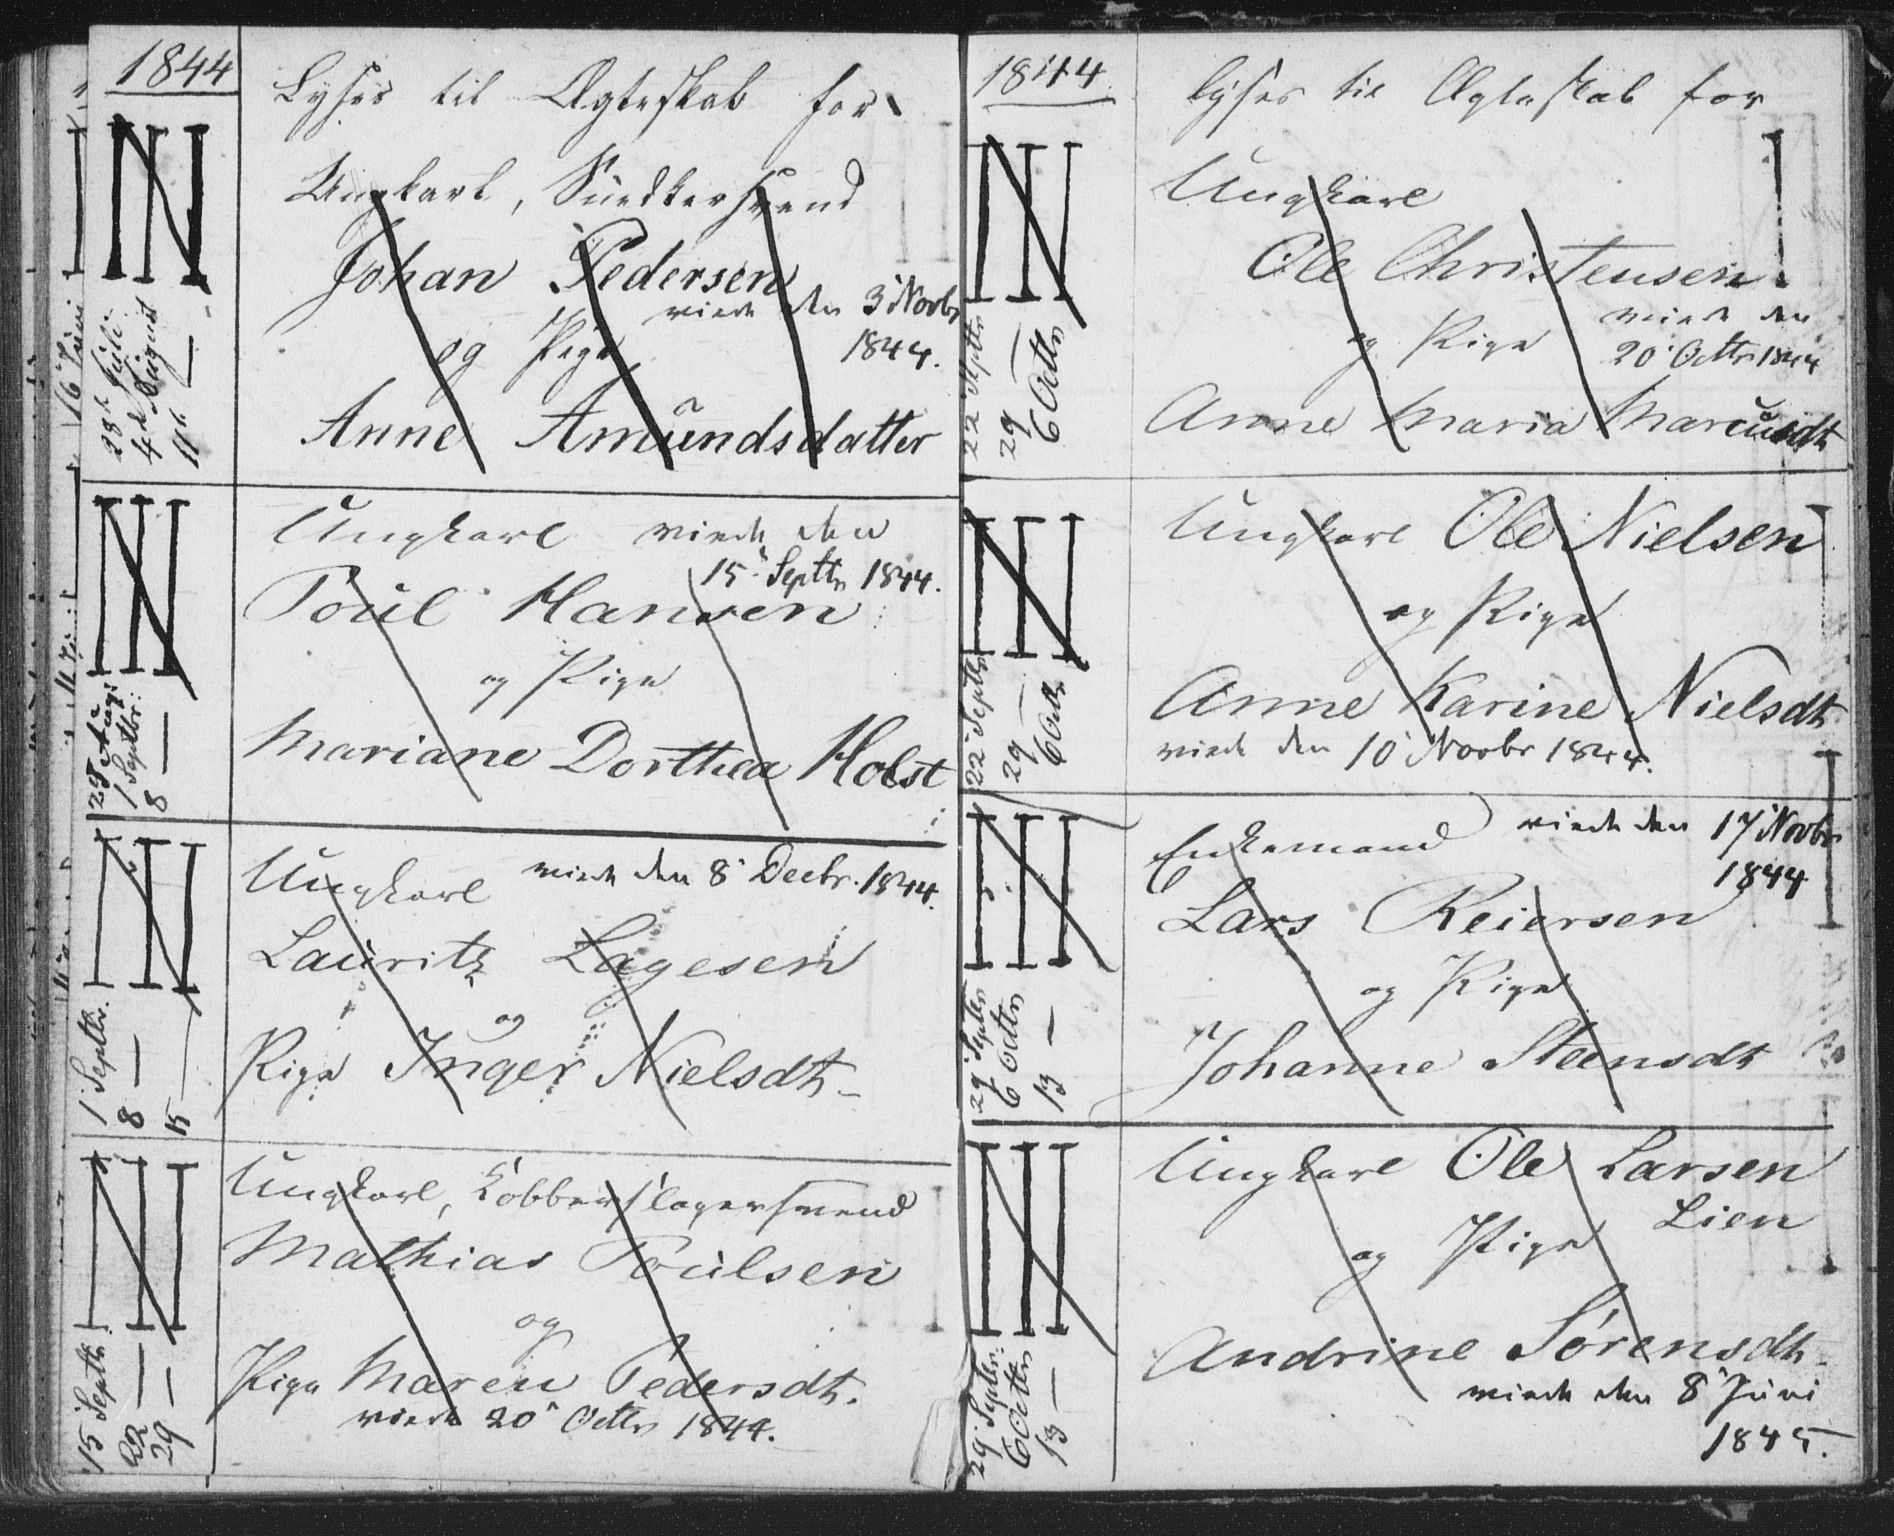 1844
Lyses til Ægteskab for
Ungkarl, Snedkersvend
Johan Pedersen
viede den 3 Novbr
1844.
og Pige
Anne Amundsdatter
28de Juli
4de August
11te —
Ungkarl viede den
15 Septbr 1844.
Poul Hansen
og Pige
Mariane Dorthea Holst
25 Aug:
1 Septbr:
8 —
Ungkarl viede den 8 Decbr. 1844.
Lauritz Lagesen
og
Pige Inger Nielsdt.
1 Septbr.
8 —
15 —
Ungkarl, Kobberslagersvend
Mathias Poulsen
og
Pige Maren Pedersdt.
viede 20 Octbr 1844.
15 Septbr.
22 —
29 —
16 Juni
1844
Lyses til Ægteskab for
Ungkarl
Ole Christensen
viede den
og Pige 20 Octbr 1844
Anne Maria Marcusdt
22 Septbr
29 —
6 Octbr
Ungkarl Ole Nielsen
og Pige
Anne Karine Nielsdt
viede den 10 Novbr 1844.
22 Septbr
29 —
6 Octbr
Enkemand viede den 17 Novbr
1844
Lars Reiersen
og Pige
Johanne Steensdt
29 Septbr
6 Octbr
13 —
Ungkarl Ole Larsen
Lien
og Pige
Andrine Sørensdt.
viede den 8 Juni
1845.
29 Septbr.
6 Octbr
13 —